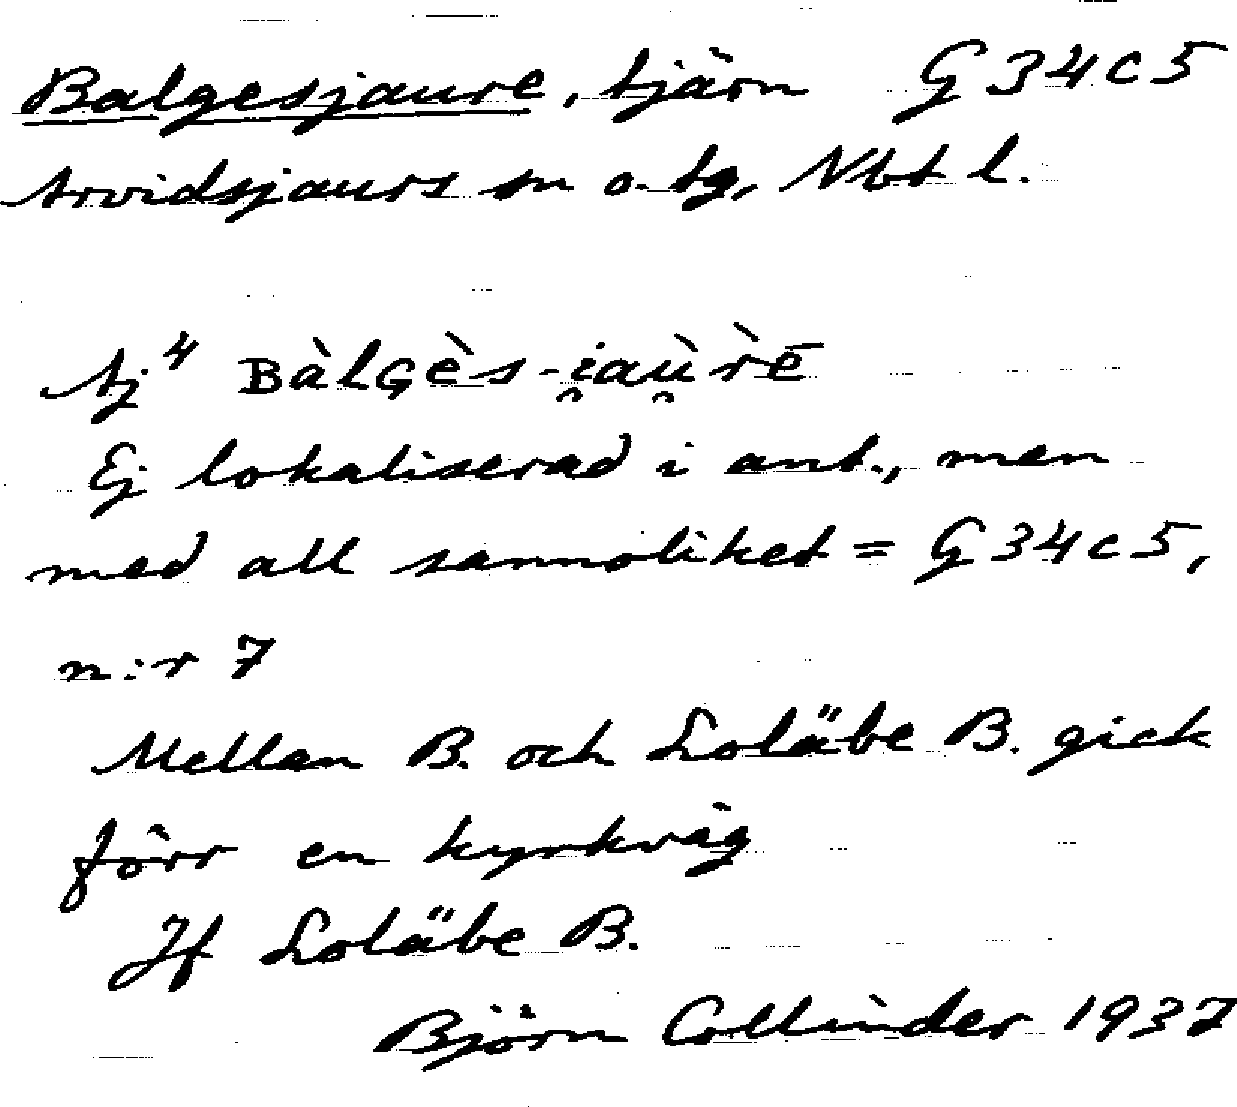 Balgesjaure, tjärn G 34 c 5
Arvidsjaurs sn o. tg, Nbt l.
Aj⁴ Bàlgès-i̯aù̯rē
Ej lokaliserad i ant., men
med all sannolikhet = G 34 c 5,
n:r 7
Mellan B. och Loläbe B. gick
förr en kyrkväg
Jf Loläbe B.
Björn Collinder 1937